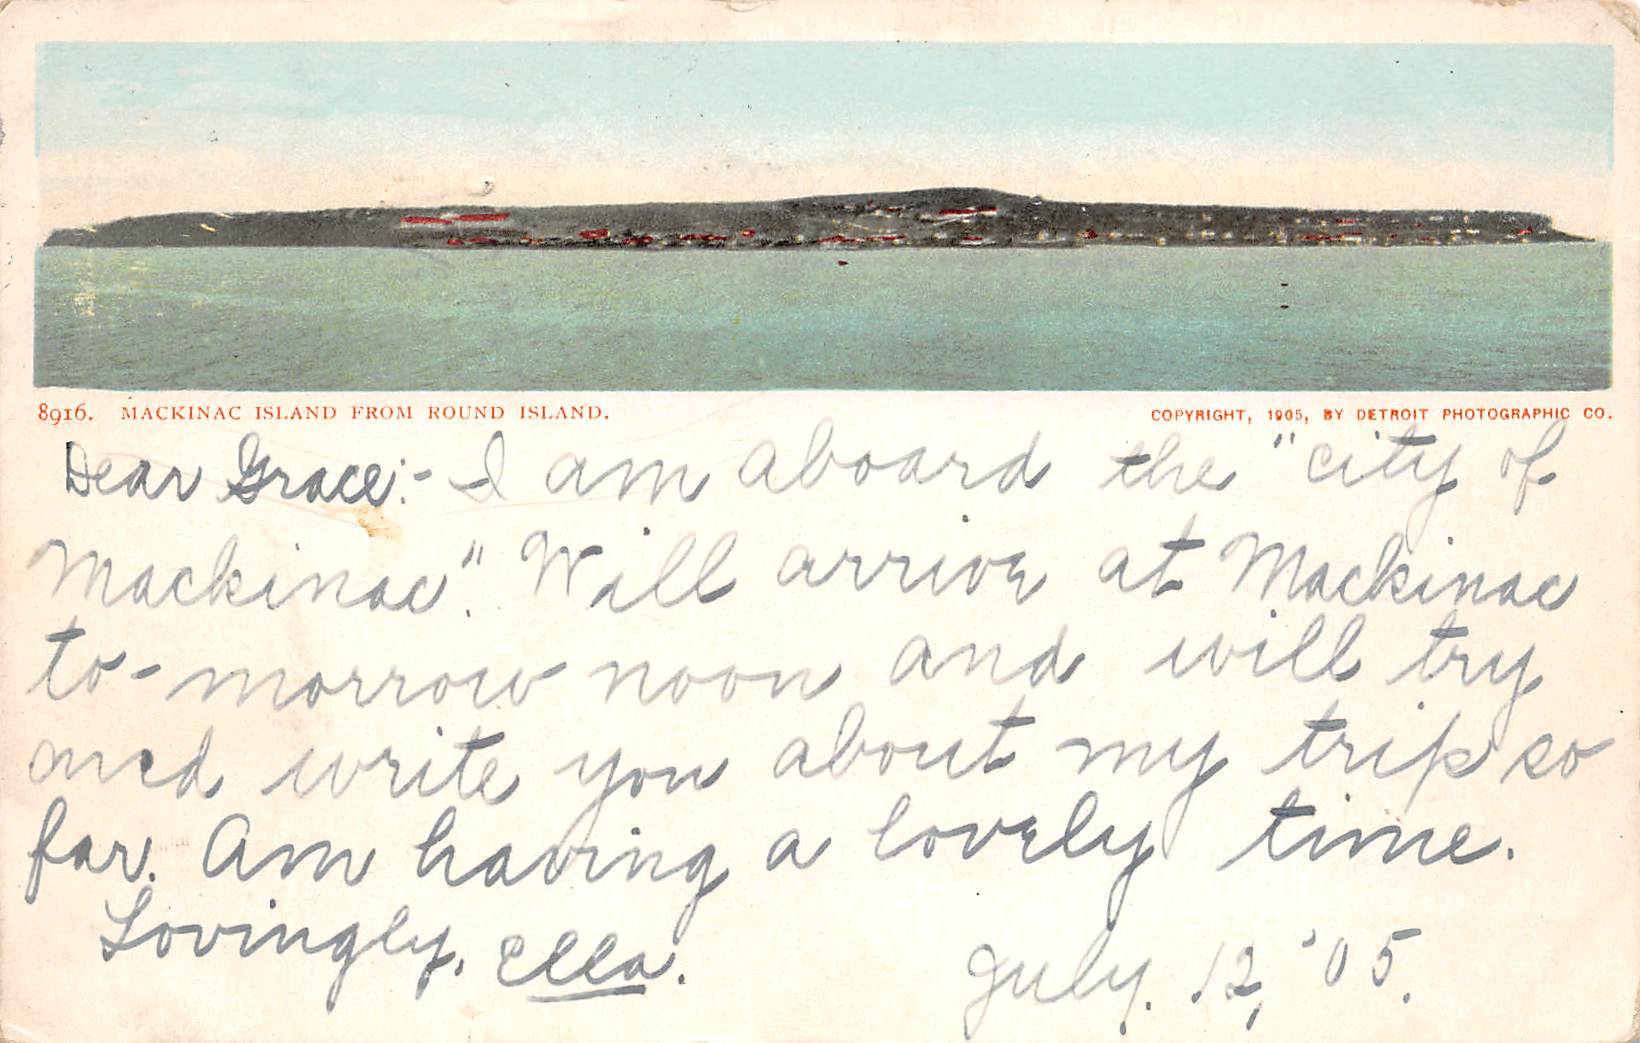 8916. MACKINAC ISLAND FROM ROUND ISLAND.
COPYRIGHT, 1905, BY DETROIT PHOTOGRAPHIC CO.
Dear Grace:- I am aboard the "City of
Mackinac". Will arrive at Mackinac
to-morrow noon and will try
and write you about my trip so
far. Am having a lovely time.
Lovingly, Ella.
July. 12, '05.